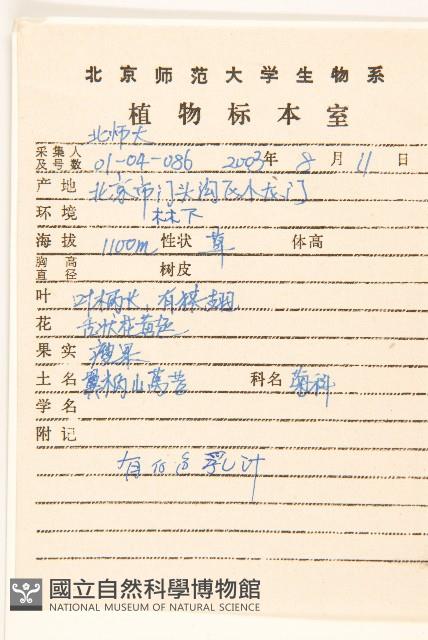 北京师范大学生物系
植物标本室
北师大
采集人及号数 01-04-086 2003年 8月 11日
产地 北京市门头沟区小龙门
环境 林下
海拔 1100m 性状 草 体高
胸高直径 树皮
叶 叶柄长，有绿翅
花 舌状花黄色
果实 瘦果
土名 翼柄山莴苣 科名 菊科
学名
附记
有白色乳汁
國立自然科學博物館
NATIONAL MUSEUM OF NATURAL SCIENCE